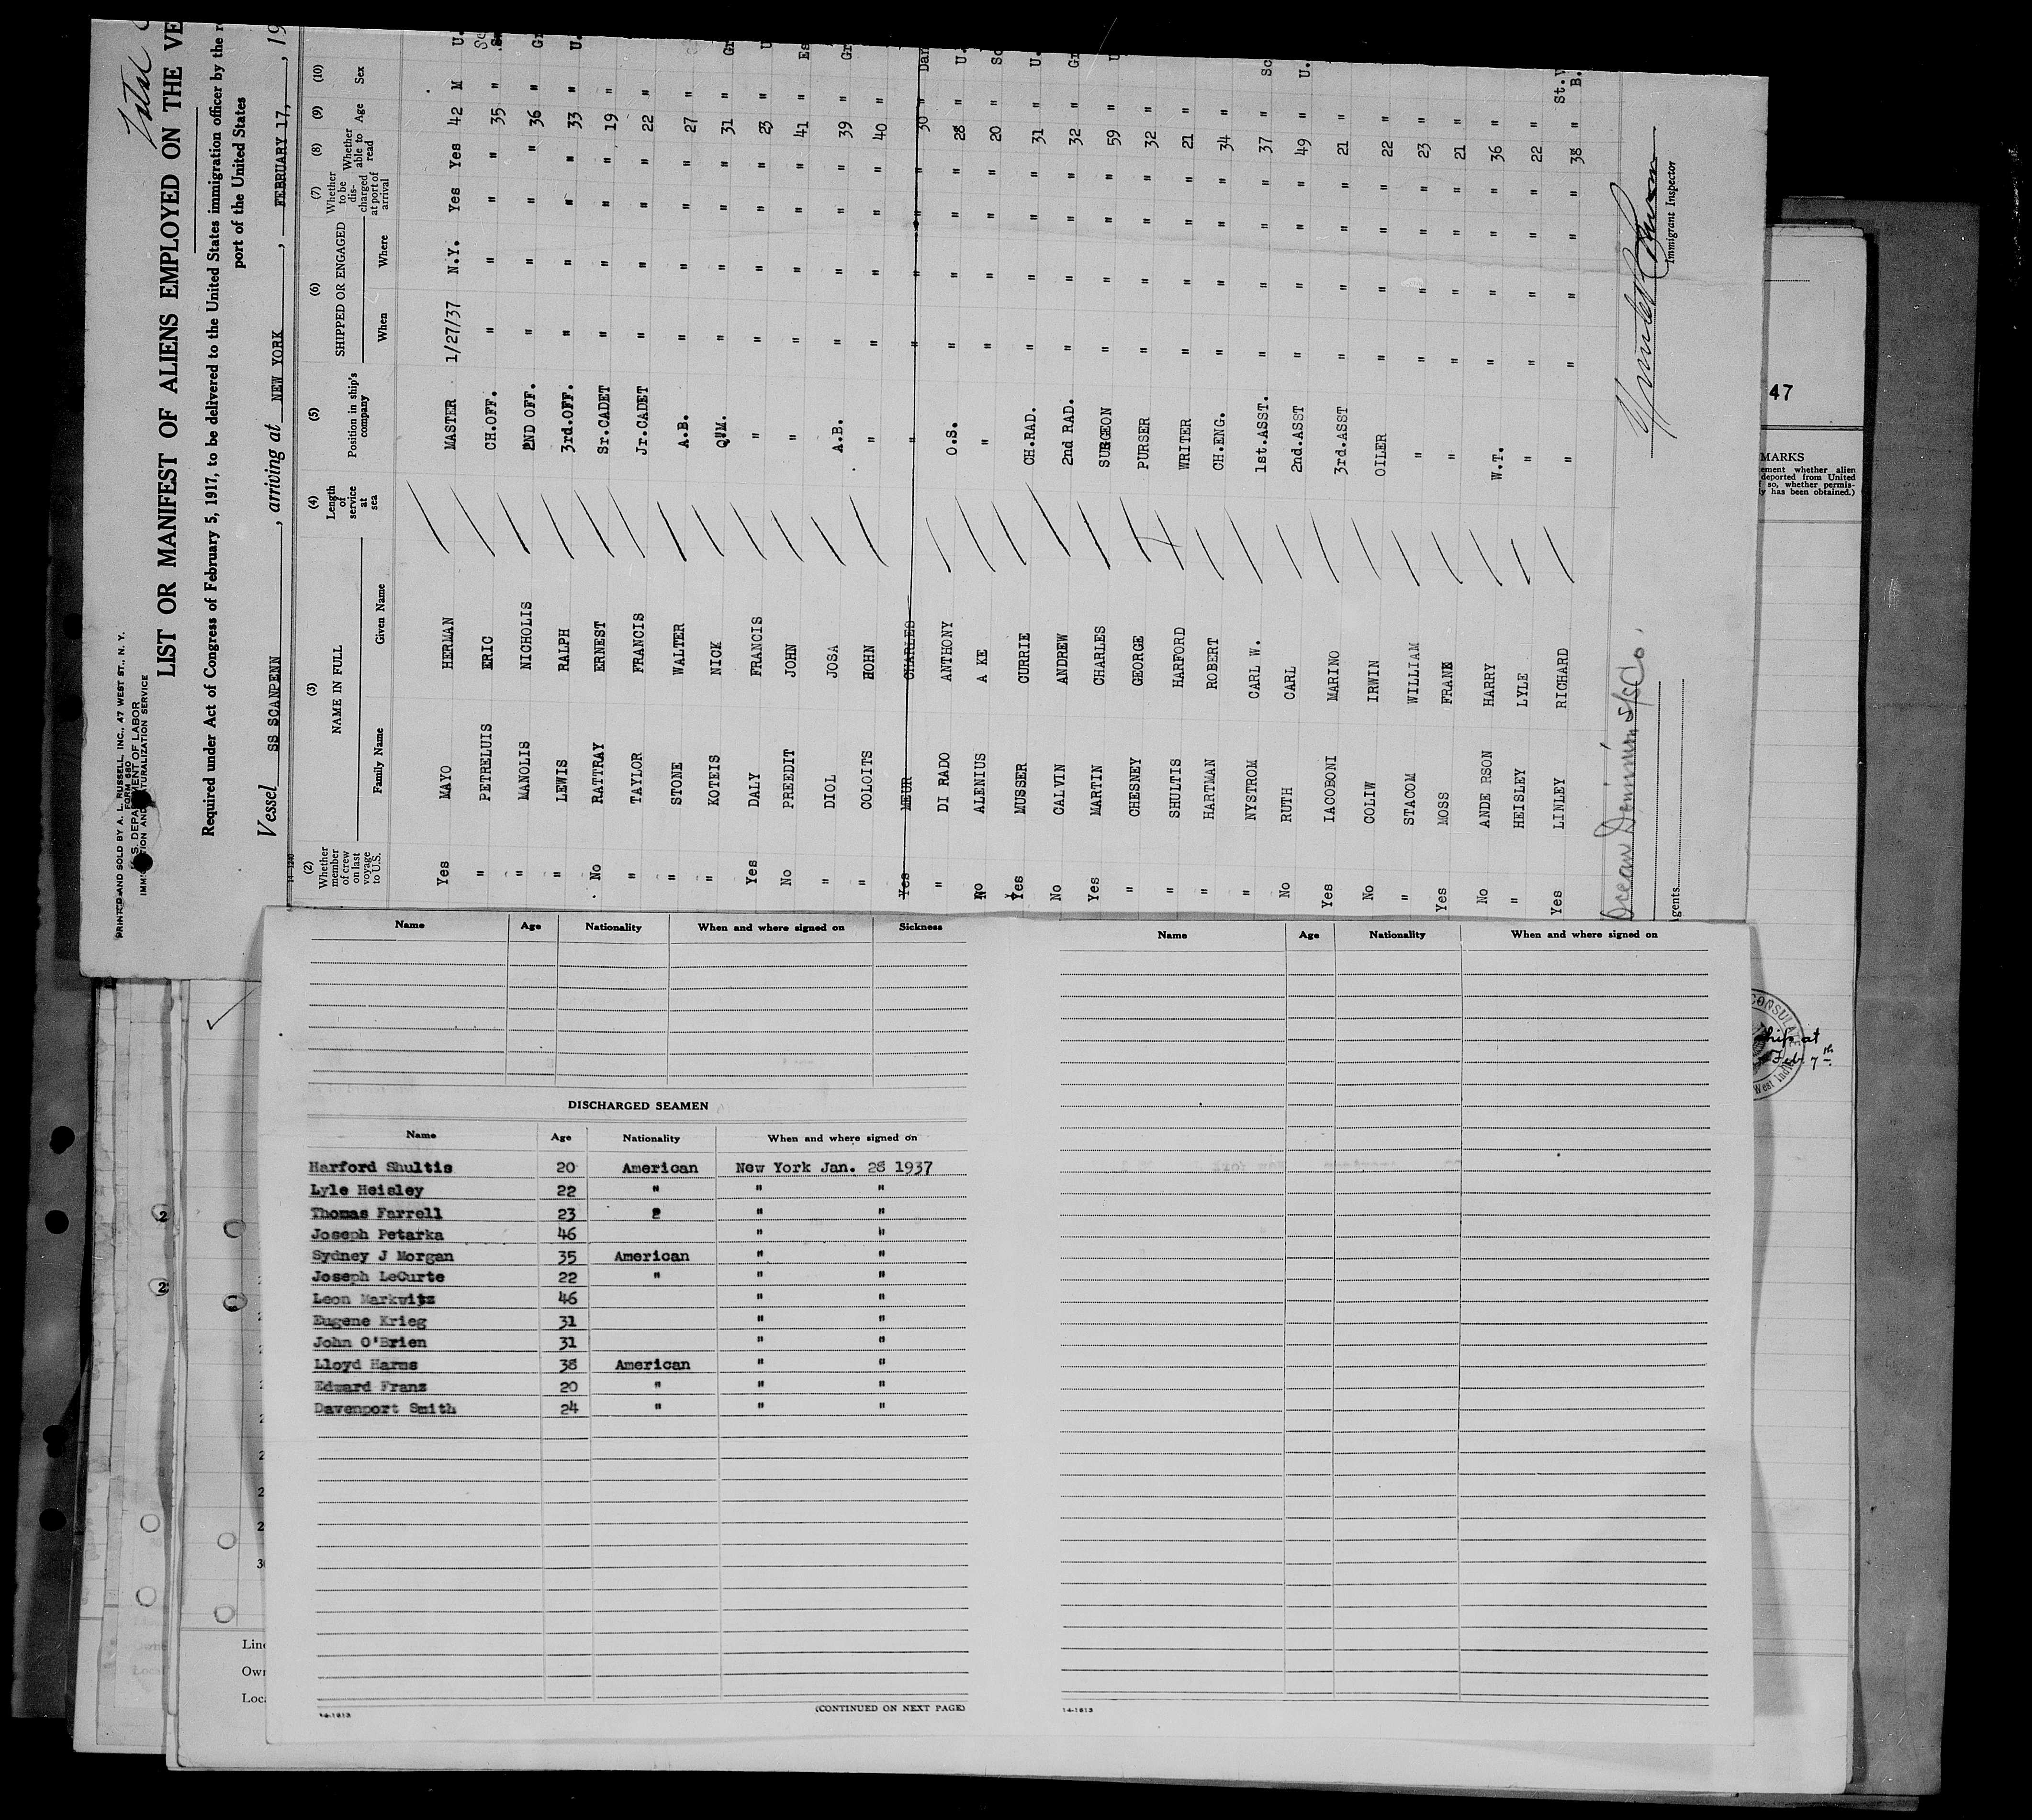 PRINTED AND SOLD BY A. L. RUSSELL, INC., 47 WEST ST., N. Y.
FORM 680
U. S. DEPARTMENT OF LABOR
IMMIGRATION AND NATURALIZATION SERVICE
LIST OR MANIFEST OF ALIENS EMPLOYED ON THE VE
Required under Act of Congress of February 5, 1917, to be delivered to the United States immigration officer by the r
port of the United States
Vessel SS SCANPENN , arriving at NEW YORK , FEBRUARY 17, , 19
14-1240
(2) Whether member of crew on last voyage to U.S. (3) NAME IN FULL Family Name Given Name (4) Length of service at sea (5) Position in ship's company (6) SHIPPED OR ENGAGED When Where (7) Whether to be discharged at port of arrival (8) Whether able to read (9) Age (10) Sex
Yes MAYO HERMAN MASTER 1/27/37 N.Y. Yes Yes 42 M U.
" PETRELUIS ERIC CH.OFF. " " " " 35 " Sc
" MANOLIS NICHOLIS 2ND OFF. " " " " 36 " Gr
" LEWIS RALPH 3rd.OFF. " " " " 33 " U.
No RATTRAY ERNEST Sr.CADET " " " " 19 "
" TAYLOR FRANCIS Jr.CADET " " " " 22 "
" STONE WALTER A.B. " " " " 27 "
" KOTEIS NICK QUM. " " " " 31 " Gr
Yes DALY FRANCIS " " " " " 23 " U
No PREEDIT JOHN " " " " " 41 " Es
" DIOL JOSA A.B. " " " " 39 " Gr
" COLOITS HOHN " " " " " 40 "
Yes MEUR CHARLES " " " " " 30 " Dan
" DI RADO ANTHONY O.S. " " " " 28 " U.
No ALENIUS A KE " " " " " 20 " Sc
Yes MUSSER CURRIE CH.RAD. " " " " 31 " U.
No CALVIN ANDREW 2nd RAD. " " " " 32 " Gr
Yes MARTIN CHARLES SURGEON " " " " 59 " U
" CHESNEY GEORGE PURSER " " " " 32 "
" SHULTIS HARFORD WRITER " " " " 21 "
" HARTMAN ROBERT CH.ENG. " " " " 34 "
" NYSTROM CARL W. 1st.ASST. " " " " 37 " Sc
No RUTH CARL 2nd.ASST " " " " 49 " U.
Yes IACOBONI MARINO 3rd.ASST " " " " 21 "
No COLIW IRWIN OILER " " " " 22 "
" STACOM WILLIAM " " " " " 23 "
Yes MOSS FRANK " " " " " 21 "
No ANDE RSON HARRY W.T. " " " " 36 "
" HEISLEY LYLE " " " " " 22 "
Yes LINLEY RICHARD " " " " " 38 " St.V B.
Ocean Dominion S/S Co.
Agents
Immigrant Inspector
47
MARKS
ement whether alien
deported from United
so, whether permis-
y has been obtained.)
CONSULA
West Indi
ship at
Feb 7th
Name Age Nationality When and where signed on Sickness
DISCHARGED SEAMEN
Name Age Nationality When and where signed on
Harford Shultis 20 American New York Jan. 28 1937
Lyle Heisley 22 " " "
Thomas Farrell 23 2 " "
Joseph Petarka 46 " "
Sydney J Morgan 35 American " "
Joseph LeCurte 22 " " "
Leon Markwitz 46 " "
Eugene Krieg 31 " "
John O'Brien 31 " "
Lloyd Harms 38 American " "
Edward Franz 20 " " "
Davenport Smith 24 " " "
(CONTINUED ON NEXT PAGE)
14-1813
Name Age Nationality When and where signed on
14-1813
Line
Own
Loca